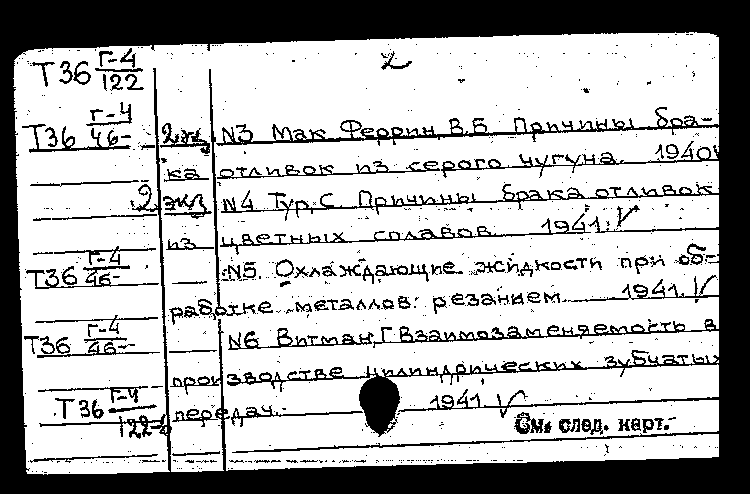 2
Т36 Г-4/122
Т36 Г-4/46- 2экз N3 Мак Феррин, В.Б Причины бра-
ка отливок из серого чугуна. 1940
2 экз N4 Тур, С. Причины брака отливок
из цветных сплавов. 1941. V
Т36 Г-4/46- N5. Охлаждающие жидкости при об-
работке металлов резанием 1941. V
Т36 Г-4/46- N6 Витман, Г Взаимозаменяемость в
производстве цилиндрических зубчатых
Т36 Г-4/122-6 передач. 1941 V
См. след. карт.